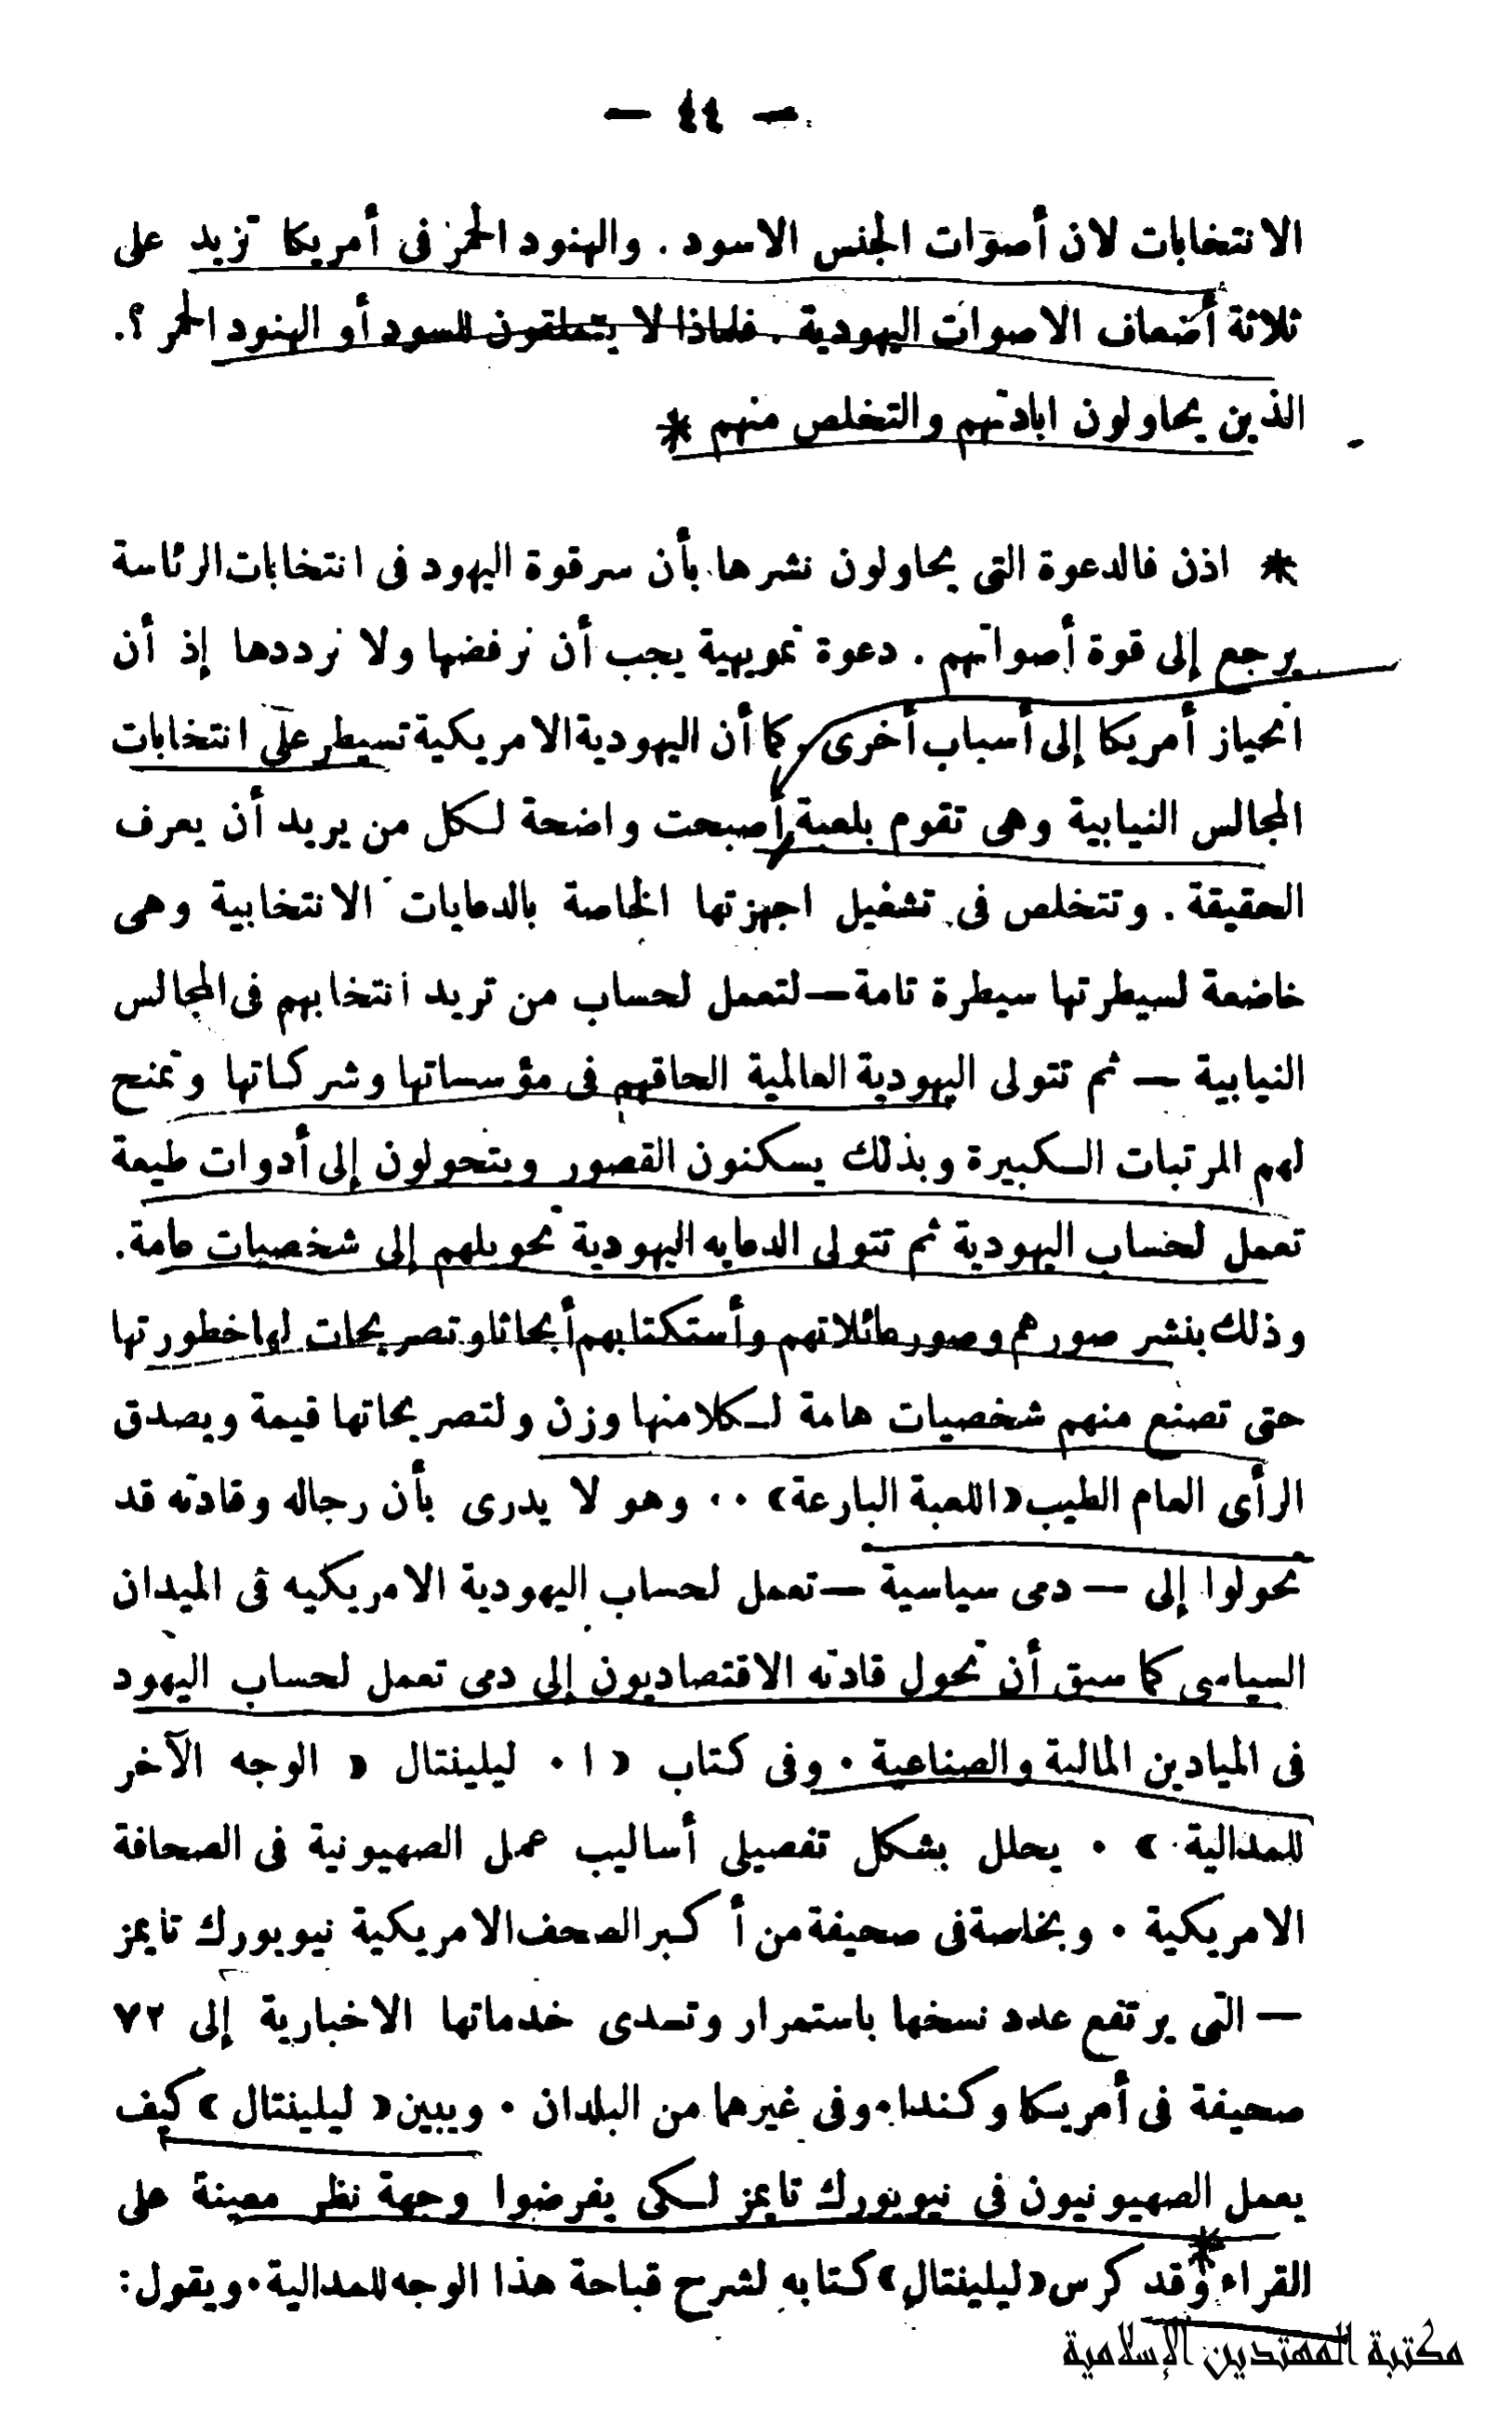 — ٤٤ —
الانتخابات لان أصوات الجنس الاسود . والهنود الحمر فى أمريكا تزيد على
ثلاثة أضعاف الاصوات اليهودية . فلماذا لا يتملقون للسود أو الهنود الحمر ؟.
الذين يحاولون ابادتهم والتخلص منهم *
* اذن فالدعوة التى يحاولون نشرها بأن سر قوة اليهود فى انتخابات الرئاسة
يرجع إلى قوة أصواتهم . دعوة تمويهية يجب أن نرفضها ولا نرددها إذ أن
انحياز أمريكا إلى أسباب أخرى . كما أن اليهودية الامريكية تسيطر على انتخابات
المجالس النيابية وهى تقوم بلعبة أصبحت واضحة لكل من يريد أن يعرف
الحقيقة . وتتخلص فى تشغيل اجهزتها الخاصة بالدعايات الانتخابية وهى
خاضعة لسيطرتها سيطرة تامة — لتعمل لحساب من تريد انتخابهم فى المجالس
النيابية — ثم تتولى اليهودية العالمية الحاقهم فى مؤسساتها وشركاتها وتمنح
لهم المرتبات الكبيرة وبذلك يسكنون القصور ويتحولون إلى أدوات طيعة
تعمل لحساب اليهودية ثم تتولى الدعايه اليهودية تحويلهم إلى شخصيات عامة.
وذلك بنشر صورهم وصور عائلاتهم وأستكتابهم أبحاثا وتصريحات لها خطورتها
حتى تصنع منهم شخصيات هامة لكلامنها وزن ولتصريحاتها قيمة ويصدق
الرأى العام الطيب «اللعبة البارعة» ٠٠ وهو لا يدرى بأن رجاله وقادته قد
تحولوا إلى — دمى سياسية — تعمل لحساب اليهودية الامريكيه فى الميدان
السياسى كما سبق أن تحول قادته الاقتصاديون إلى دمى تعمل لحساب اليهود
فى الميادين المالية والصناعية ٠ وفى كتاب « ا ٠ ليلينتال « الوجه الآخر
للمدالية » ٠ يحلل بشكل تفصيلى أساليب عمل الصهيونية فى الصحافة
الامريكية ٠ وبخاصة فى صحيفة من أكبر الصحف الامريكية نيويورك تايمز
— التى يرتفع عدد نسخها باستمرار وتسدى خدماتها الاخبارية إلى ٧٢
صحيفة فى أمريكا وكندا٠ وفى غيرهما من البلدان ٠ ويبين « ليلينتال » كيف
يعمل الصهيونيون فى نيويورك تايمز لكى يفرضوا وجهة نظر معينة على
القراء * وقد كرس «ليلينتال» كتابه لشرح قباحة هذا الوجه للمدالية٠ ويقول :
مكتبة المهتدين الإسلامية